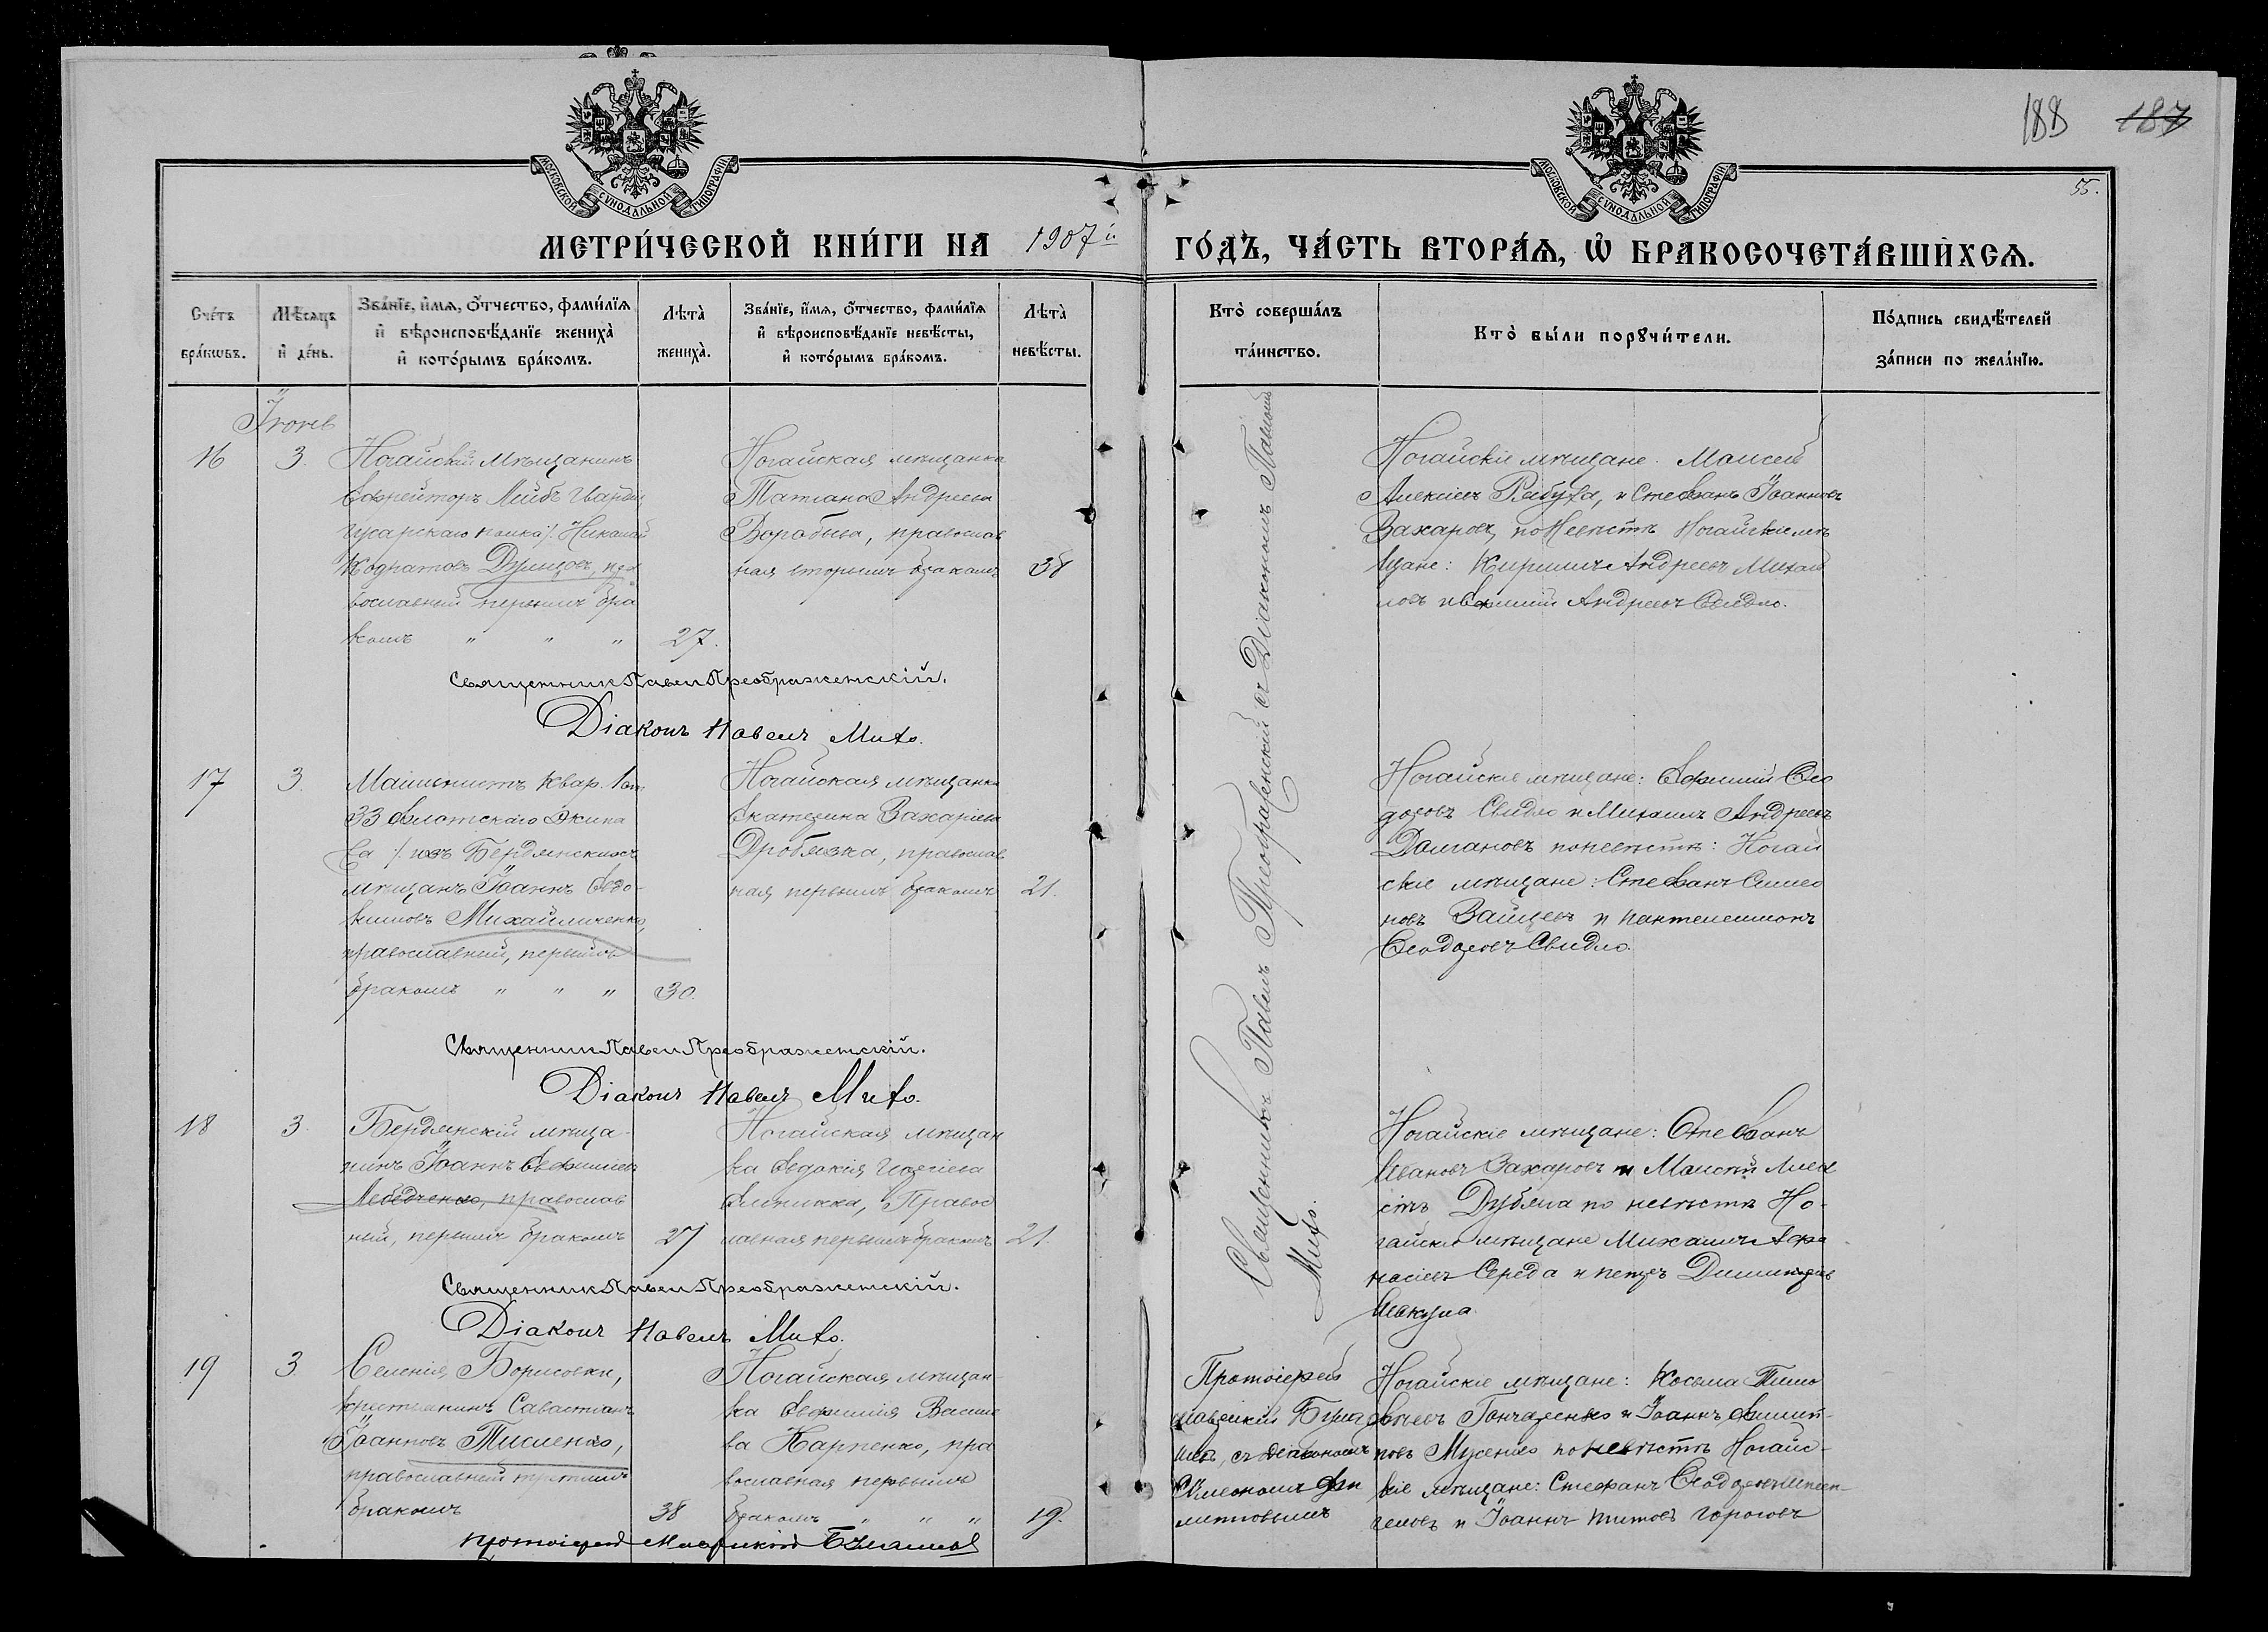 188 187
55.
МОСКОВСКОЙ СУНОДАЛЬНОЙ ТИПОГРАФІИ
МОСКОВСКОЙ СУНОДАЛЬНОЙ ТИПОГРАФІИ
МЕТРИ́ЧЕСКОЙ КНИ́ГИ НА 1907 й. ГО́ДЪ, ЧА́СТЬ ВТОРА́Ѧ, Ѡ БРАКОСОЧЕТА́ВШИХСѦ.
Сче́тъ бра́кѡвъ.
Мѣсяцъ и де́нь.
Зва́нїе, и́мѧ, ѻ́тчество, фами́лїѧ
и вѣроисповѣ́данїе жениха̀
и кото́рымъ бра́комъ.
Лѣта̀ жениха̀.
Зва́нїе, и́мѧ, ѻ́тчество, фами́лїѧ
и вѣроисповѣ́данїе невѣ́сты,
и кото́рымъ бра́комъ.
Лѣта̀ невѣ́сты.
Кто̀ соверша́лъ та́инство.
Кто̀ бы́ли порꙋчи́тели.
По́дпись свидѣ́телей
за́писи по жела́нїю.
16
3.
Ногайскій мѣщанинъ
Ефрейторъ Лейбъ Гвардіи
Гусарскаго полка /. Николай
Кодратовъ Дулицовъ, пра
вославный первымъ бра
комъ " " "
27.
Ногайская мѣщанка
Татіана Андреева
Воробьева, православ
ная вторымъ бракомъ
38
Ногайскіе мѣщане. Моисей
Алексіевъ и Стефанъ Іоанновъ
Захаровъ, по Невѣстѣ Ногайскіе мѣ
щане: Кириллъ Андреевъ Михай
ловъ и Евфимій Андреевъ Свидло.
Священникъ Павелъ Преображенскій.
Діаконъ Павелъ Михо.
17
3.
Машинистъ Квар. 1 ст.
33 Флотскаго Экипа
жа /. изъ Бердянскихъ
мѣщанъ Іоаннъ Евдо-
кимовъ Михайличенко,
православный, первымъ
бракомъ " " "
30.
Ногайская мѣщанка
Екатерина Захаріева
Дробязка, православ
ная первымъ бракомъ
21.
Ногайскіе мѣщане: Евфимій Ѳео
доровъ Свидло и Михаилъ Андреевъ
Долгановъ по невѣстѣ: Ногай
скіе мѣщане: Стефанъ Симео
новъ Зайцевъ и Пантелеимонъ
Ѳеодоровъ Свидло.
Священникъ Павелъ Преображенскій.
Діаконъ Павелъ Михо.
18
3
Бердянскій мѣща-
нинъ Іоаннъ Евфиміевъ
Лебедченко, православ
ный, первымъ бракомъ
27
Ногайская мѣщан
ка Евдокія Георгіева
Правос
лавная первымъ бракомъ
21.
Ногайскіе мѣщане: Стефанъ
Ивановъ Захаровъ и Моисей Алек
сіевъ по невѣстѣ Но-
гайскіе мѣщане Михаилъ Афа
насіевъ Середа и Петръ Димитріевъ
Священникъ Павелъ Преображенскій.
Діаконъ Павелъ Михо.
Священникъ Павелъ Преображенскій съ Діакономъ Павломъ
Михо.
19
3.
Селенія Борисовки,
крестьянинъ Савастіанъ
Іоанновъ Тисленко,
православный третьимъ
бракомъ
38
Ногайская мѣщан-
ка Евфимія Василіе
ва Карпенко, пра
вославная первымъ
бракомъ " " "
19.
Протоіерей
съ діакономъ
Сѵмеономъ
Ногайскіе мѣщане: Косьма Тимо
феевъ Гончаренко и Іоаннъ Филип-
повъ Мусенко по невѣстѣ Ногайс-
кіе мѣщане: Стефанъ Ѳеодоровъ
и Іоаннъ Титовъ Гороговъ
Протоіерей